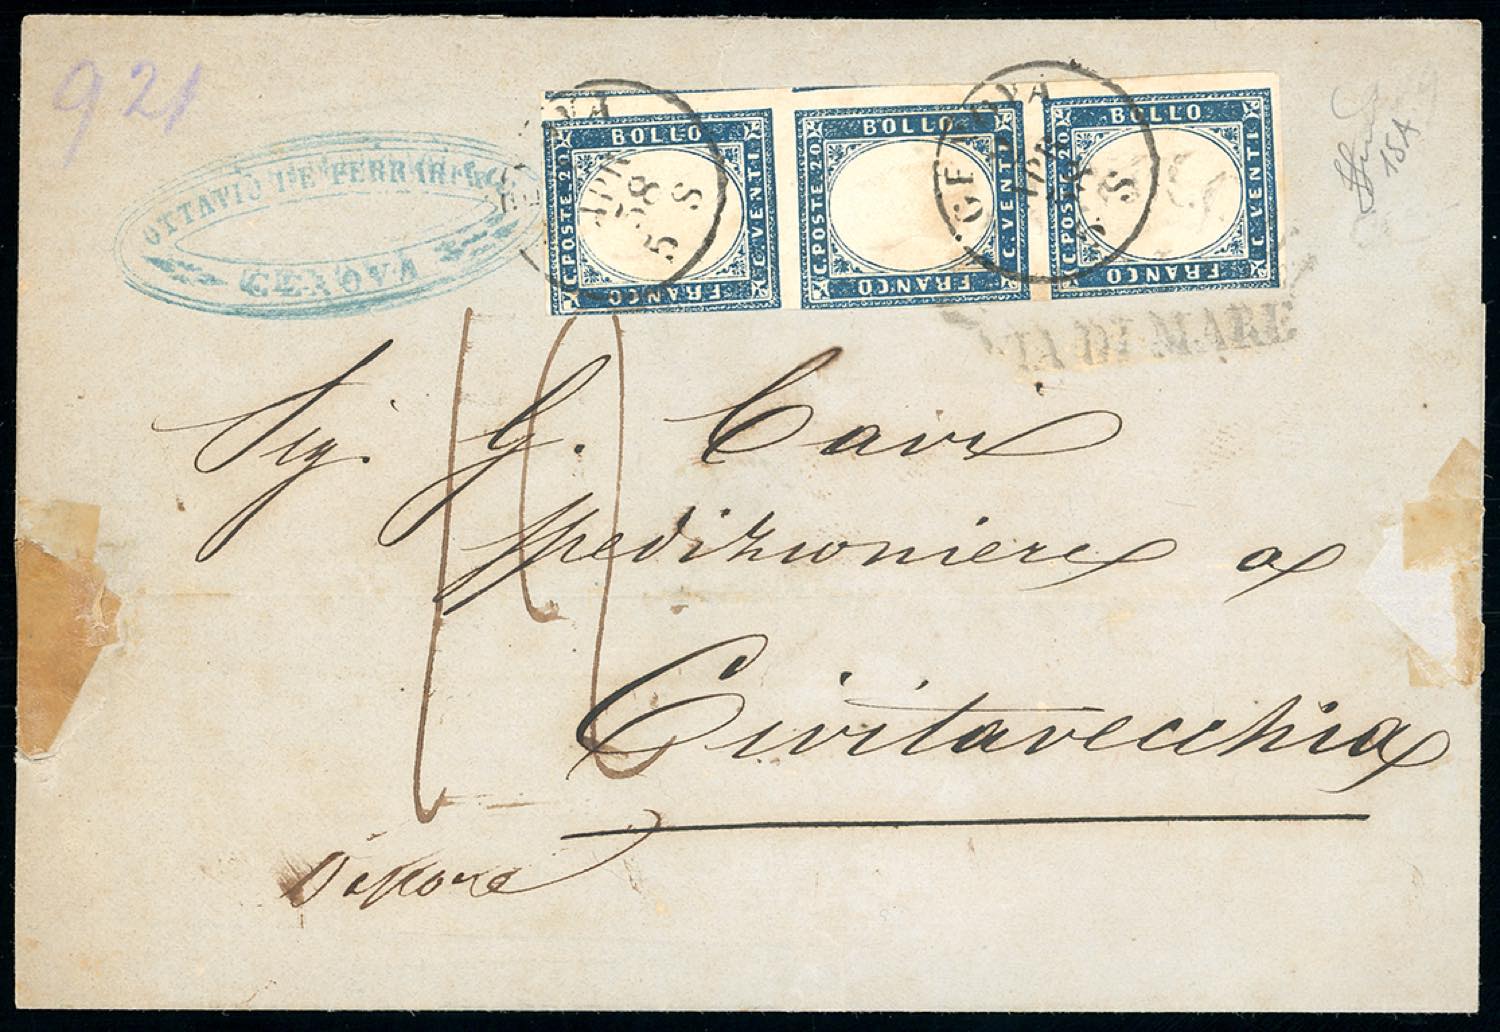 921
OTTAVIO DE FERRARI
GENOVA
BOLLO
C. POSTE 20
C. VENTI
FRANCO
BOLLO
C. POSTE 20
C. VENTI
FRANCO
BOLLO
C. POSTE 20
C. VENTI
FRANCO
OVA
APR
58
5 S
GENOVA
APR
58
5 S
VIA DI MARE
15A
Sig. G. Cavi
Spedizioniere a
Civitavecchia
Vapore